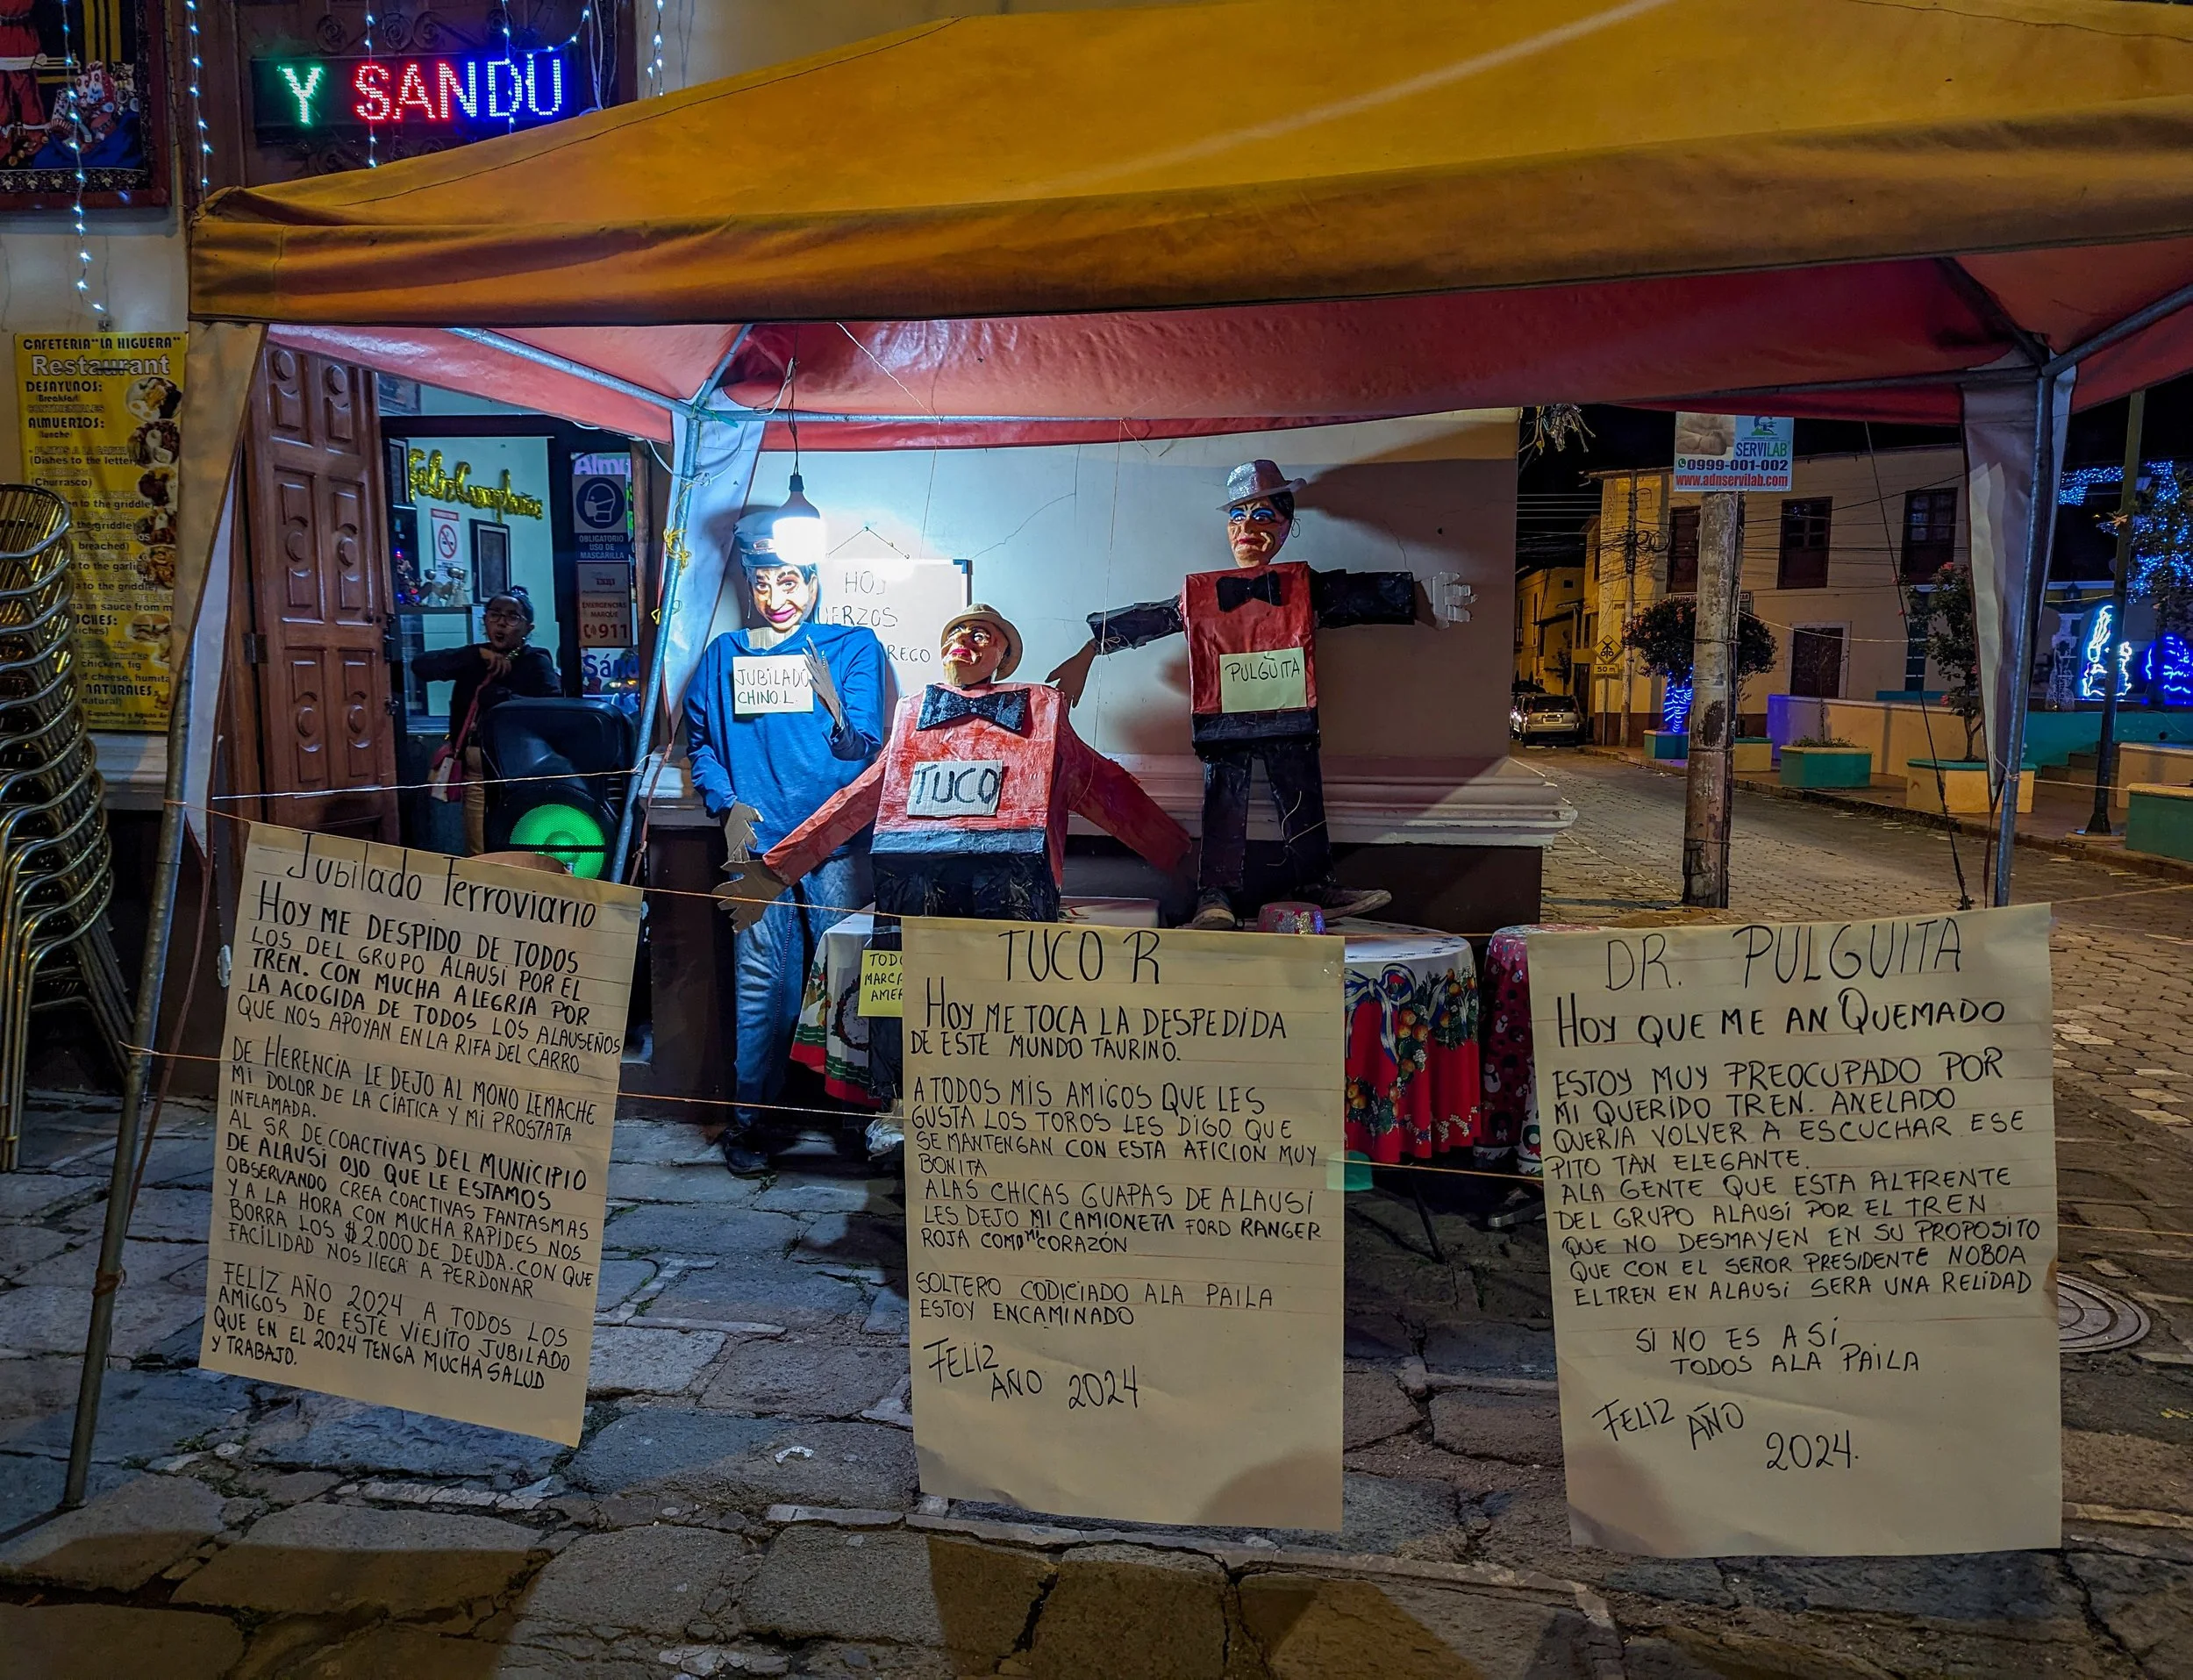 Y SANDU
CAFETERIA "LA HIGUERA"
Restaurant
DESAYUNOS:
(Breakfast)
CONTINENTALES
ALMUERZOS:
(lunche)
(Dishes to the letter)
(Churrasco)
en to the griddle
the griddle)
breached)
to the garlic
a to the griddle
sauce from m
chicken, fig
d cheese, humita
NATURALES
natural)
Feliz Cumpleaños
Almu
OBLIGATORIO
USO DE
MASCARILLA
EMERGENCIAS
MARQUE
911
Sán
HOY
UERZOS
REGO
JUBILADO
CHINO L
TUCO
PULGUITA
SERVILAB
0999-001-002
www.adnservilab.com
50 m
TODO
MARCA
AMER
Jubilado Ferroviario
HOY ME DESPIDO DE TODOS
LOS DEL GRUPO ALAUSÍ POR EL
TREN. CON MUCHA ALEGRIA POR
LA ACOGIDA DE TODOS LOS ALAUSEÑOS
QUE NOS APOYAN EN LA RIFA DEL CARRO
DE HERENCIA LE DEJO AL MONO LEMACHE
MI DOLOR DE LA CÍATICA Y MI PROSTATA
INFLAMADA.
AL SR DE COACTIVAS DEL MUNICIPIO
DE ALAUSÍ OJO QUE LE ESTAMOS
OBSERVANDO CREA COACTIVAS FANTASMAS
Y A LA HORA CON MUCHA RAPIDES NOS
BORRA LOS $2.000 DE DEUDA. CON QUE
FACILIDAD NOS LLEGA A PERDONAR
FELIZ AÑO 2024 A TODOS LOS
AMIGOS DE ESTE VIEJITO JUBILADO
QUE EN EL 2024 TENGA MUCHA SALUD
Y TRABAJO.
TUCO R
HOY ME TOCA LA DESPEDIDA
DE ESTE MUNDO TAURINO.
A TODOS MIS AMIGOS QUE LES
GUSTA LOS TOROS LES DIGO QUE
SE MANTENGAN CON ESTA AFICION MUY
BONITA
ALAS CHICAS GUAPAS DE ALAUSÍ
LES DEJO MI CAMIONETA FORD RANGER
ROJA COMO MI CORAZÓN
SOLTERO CODICIADO ALA PAILA
ESTOY ENCAMINADO
FELIZ
AÑO 2024
DR. PULGUITA
HOY QUE ME AN QUEMADO
ESTOY MUY PREOCUPADO POR
MI QUERIDO TREN. ANELADO
QUERIA VOLVER A ESCUCHAR ESE
PITO TAN ELEGANTE.
ALA GENTE QUE ESTA ALFRENTE
DEL GRUPO ALAUSÍ POR EL TREN
QUE NO DESMAYEN EN SU PROPOSITO
QUE CON EL SEÑOR PRESIDENTE NOBOA
EL TREN EN ALAUSÍ SERA UNA RELIDAD
SI NO ES ASÍ
TODOS ALA PAILA
FELIZ AÑO
2024.